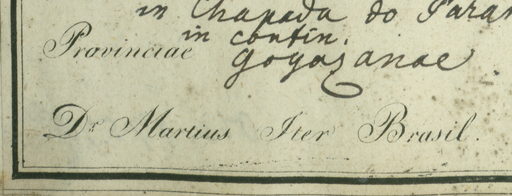 in Chapada do Paran
in contin.
Provinciae Goyazanae
Dr Martius Iter Brasil.